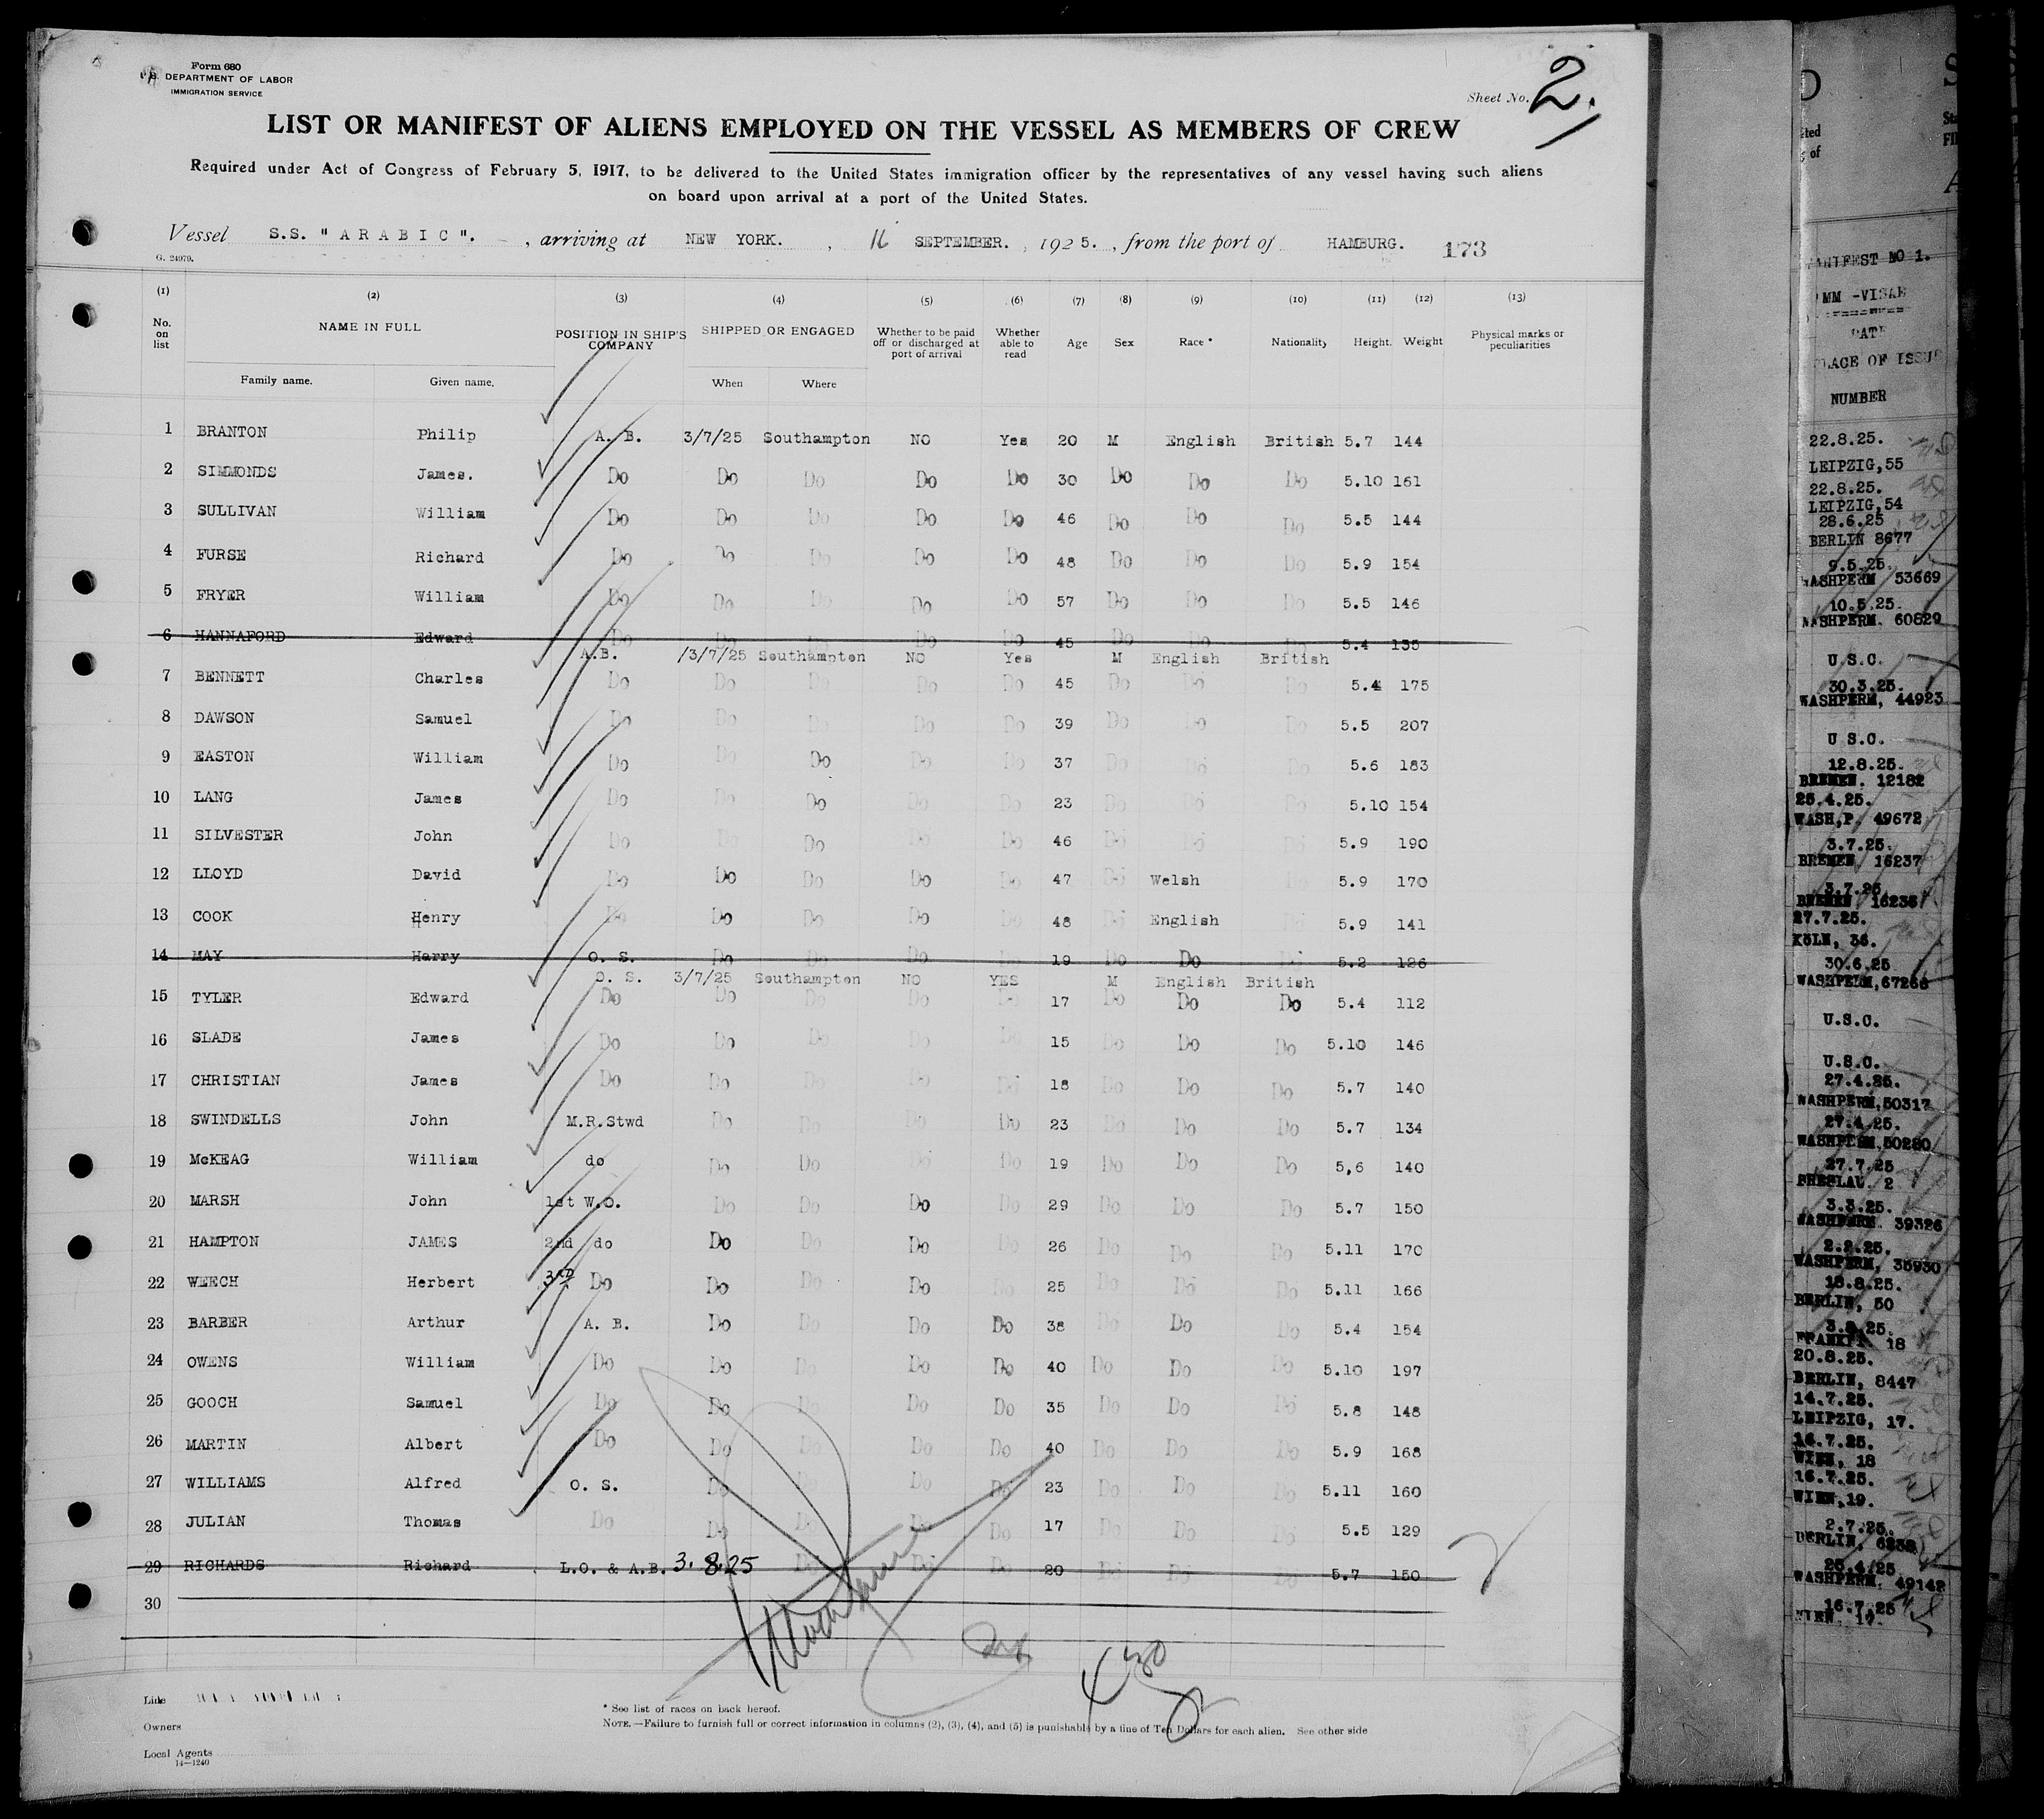 Form 680
U.S. DEPARTMENT OF LABOR
IMMIGRATION SERVICE
Sheet No. 2.
LIST OR MANIFEST OF ALIENS EMPLOYED ON THE VESSEL AS MEMBERS OF CREW
Required under Act of Congress of February 5, 1917, to be delivered to the United States immigration officer by the representatives of any vessel having such aliens
on board upon arrival at a port of the United States.
Vessel S.S. "ARABIC". , arriving at NEW YORK. , 16 SEPTEMBER. , 1925. , from the port of HAMBURG. 173
G. 24979.
(1) (2) (3) (4) (5) (6) (7) (8) (9) (10) (11) (12) (13)
No. on list NAME IN FULL POSITION IN SHIP'S COMPANY SHIPPED OR ENGAGED Whether to be paid off or discharged at port of arrival Whether able to read Age Sex Race * Nationality Height. Weight Physical marks or peculiarities
Family name. Given name. When Where
1 BRANTON Philip A. B. 3/7/25 Southampton NO Yes 20 M English British 5.7 144
2 SIMMONDS James. Do Do Do Do Do 30 Do Do Do 5.10 161
3 SULLIVAN William Do Do Do Do Do 46 Do Do Do 5.5 144
4 FURSE Richard Do Do Do Do Do 48 Do Do Do 5.9 154
5 FRYER William Do Do Do Do Do 57 Do Do Do 5.5 146
6 HANNAFORD Edward Do Do Do Do Do 45 Do Do Do 5.4 135
A.B. /3/7/25 Southampton NO Yes M English British
7 BENNETT Charles Do Do Do Do Do 45 Do Do Do 5.4 175
8 DAWSON Samuel Do Do Do Do Do 39 Do Do Do 5.5 207
9 EASTON William Do Do Do Do Do 37 Do Do Do 5.6 183
10 LANG James Do Do Do Do Do 23 Do Do Do 5.10 154
11 SILVESTER John Do Do Do Do Do 46 Do Do Do 5.9 190
12 LLOYD David Do Do Do Do Do 47 Do Welsh Do 5.9 170
13 COOK Henry Do Do Do Do Do 48 Do English Do 5.9 141
14 MAY Harry O. S. Do Do Do Do 19 Do Do Do 5.2 126
O. S. 3/7/25 Southampton NO YES M English British
15 TYLER Edward Do Do Do Do Do 17 Do Do Do 5.4 112
16 SLADE James Do Do Do Do Do 15 Do Do Do 5.10 146
17 CHRISTIAN James Do Do Do Do Do 18 Do Do Do 5.7 140
18 SWINDELLS John M.R.Stwd Do Do Do Do 23 Do Do Do 5.7 134
19 McKEAG William do Do Do Do Do 19 Do Do Do 5,6 140
20 MARSH John 1st W.O. Do Do Do Do 29 Do Do Do 5.7 150
21 HAMPTON JAMES 2nd do Do Do Do Do 26 Do Do Do 5.11 170
22 WEECH Herbert 3RD Do Do Do Do Do 25 Do Do Do 5.11 166
23 BARBER Arthur A. B. Do Do Do Do 38 Do Do Do 5.4 154
24 OWENS William Do Do Do Do Do 40 Do Do Do 5.10 197
25 GOOCH Samuel Do Do Do Do Do 35 Do Do Do 5.8 148
26 MARTIN Albert Do Do Do Do Do 40 Do Do Do 5.9 168
27 WILLIAMS Alfred O. S. Do Do Do Do 23 Do Do Do 5.11 160
28 JULIAN Thomas Do Do Do Do Do 17 Do Do Do 5.5 129
29 RICHARDS Richard L.O. & A.B. 3.8.25 Do Do Do 20 Do Do Do 5.7 150
30
Line
Owners
Local Agents
14—1240
* See list of races on back hereof.
NOTE.—Failure to furnish full or correct information in columns (2), (3), (4), and (5) is punishable by a fine of Ten Dollars for each alien. See other side
MANIFEST NO 1.
IMM -VISAE
DATE
PLACE OF ISSUE
NUMBER
22.8.25.
LEIPZIG,55
22.8.25.
LEIPZIG,54
28.6.25
BERLIN 8677
9.5.25.
WASHPERM 53669
10.5.25.
WASHPERM. 60829
U.S.C.
30.3.25.
WASHPERM, 44923
U S.C.
12.8.25.
BREMEN. 12182
25.4.25.
WASH,P. 49672
3.7.25.
BREMEN 16237
3.7.25.
BREMEN 16236
27.7.25.
KöLN, 36.
30.6.25
WASHPERM,67266
U.S.C.
U.S.C.
27.4.25.
WASHPERM,50317
27.4.25.
WASHPERM,50280
27.7.25
BRESLAU. 2
3.3.25.
WASHPERM. 39326
2.2.25.
WASHPERM, 35930
18.8.25.
BERLIN, 50
18
20.8.25.
BERLIN, 8447
14.7.25.
LEIPZIG, 17.
16.7.25.
WIEN, 18
16.7.25.
WIEN,19.
2.7.25.
BERLIN,
25.4.25
WASHPERM. 49142
16.7.25
WIEN. 17.